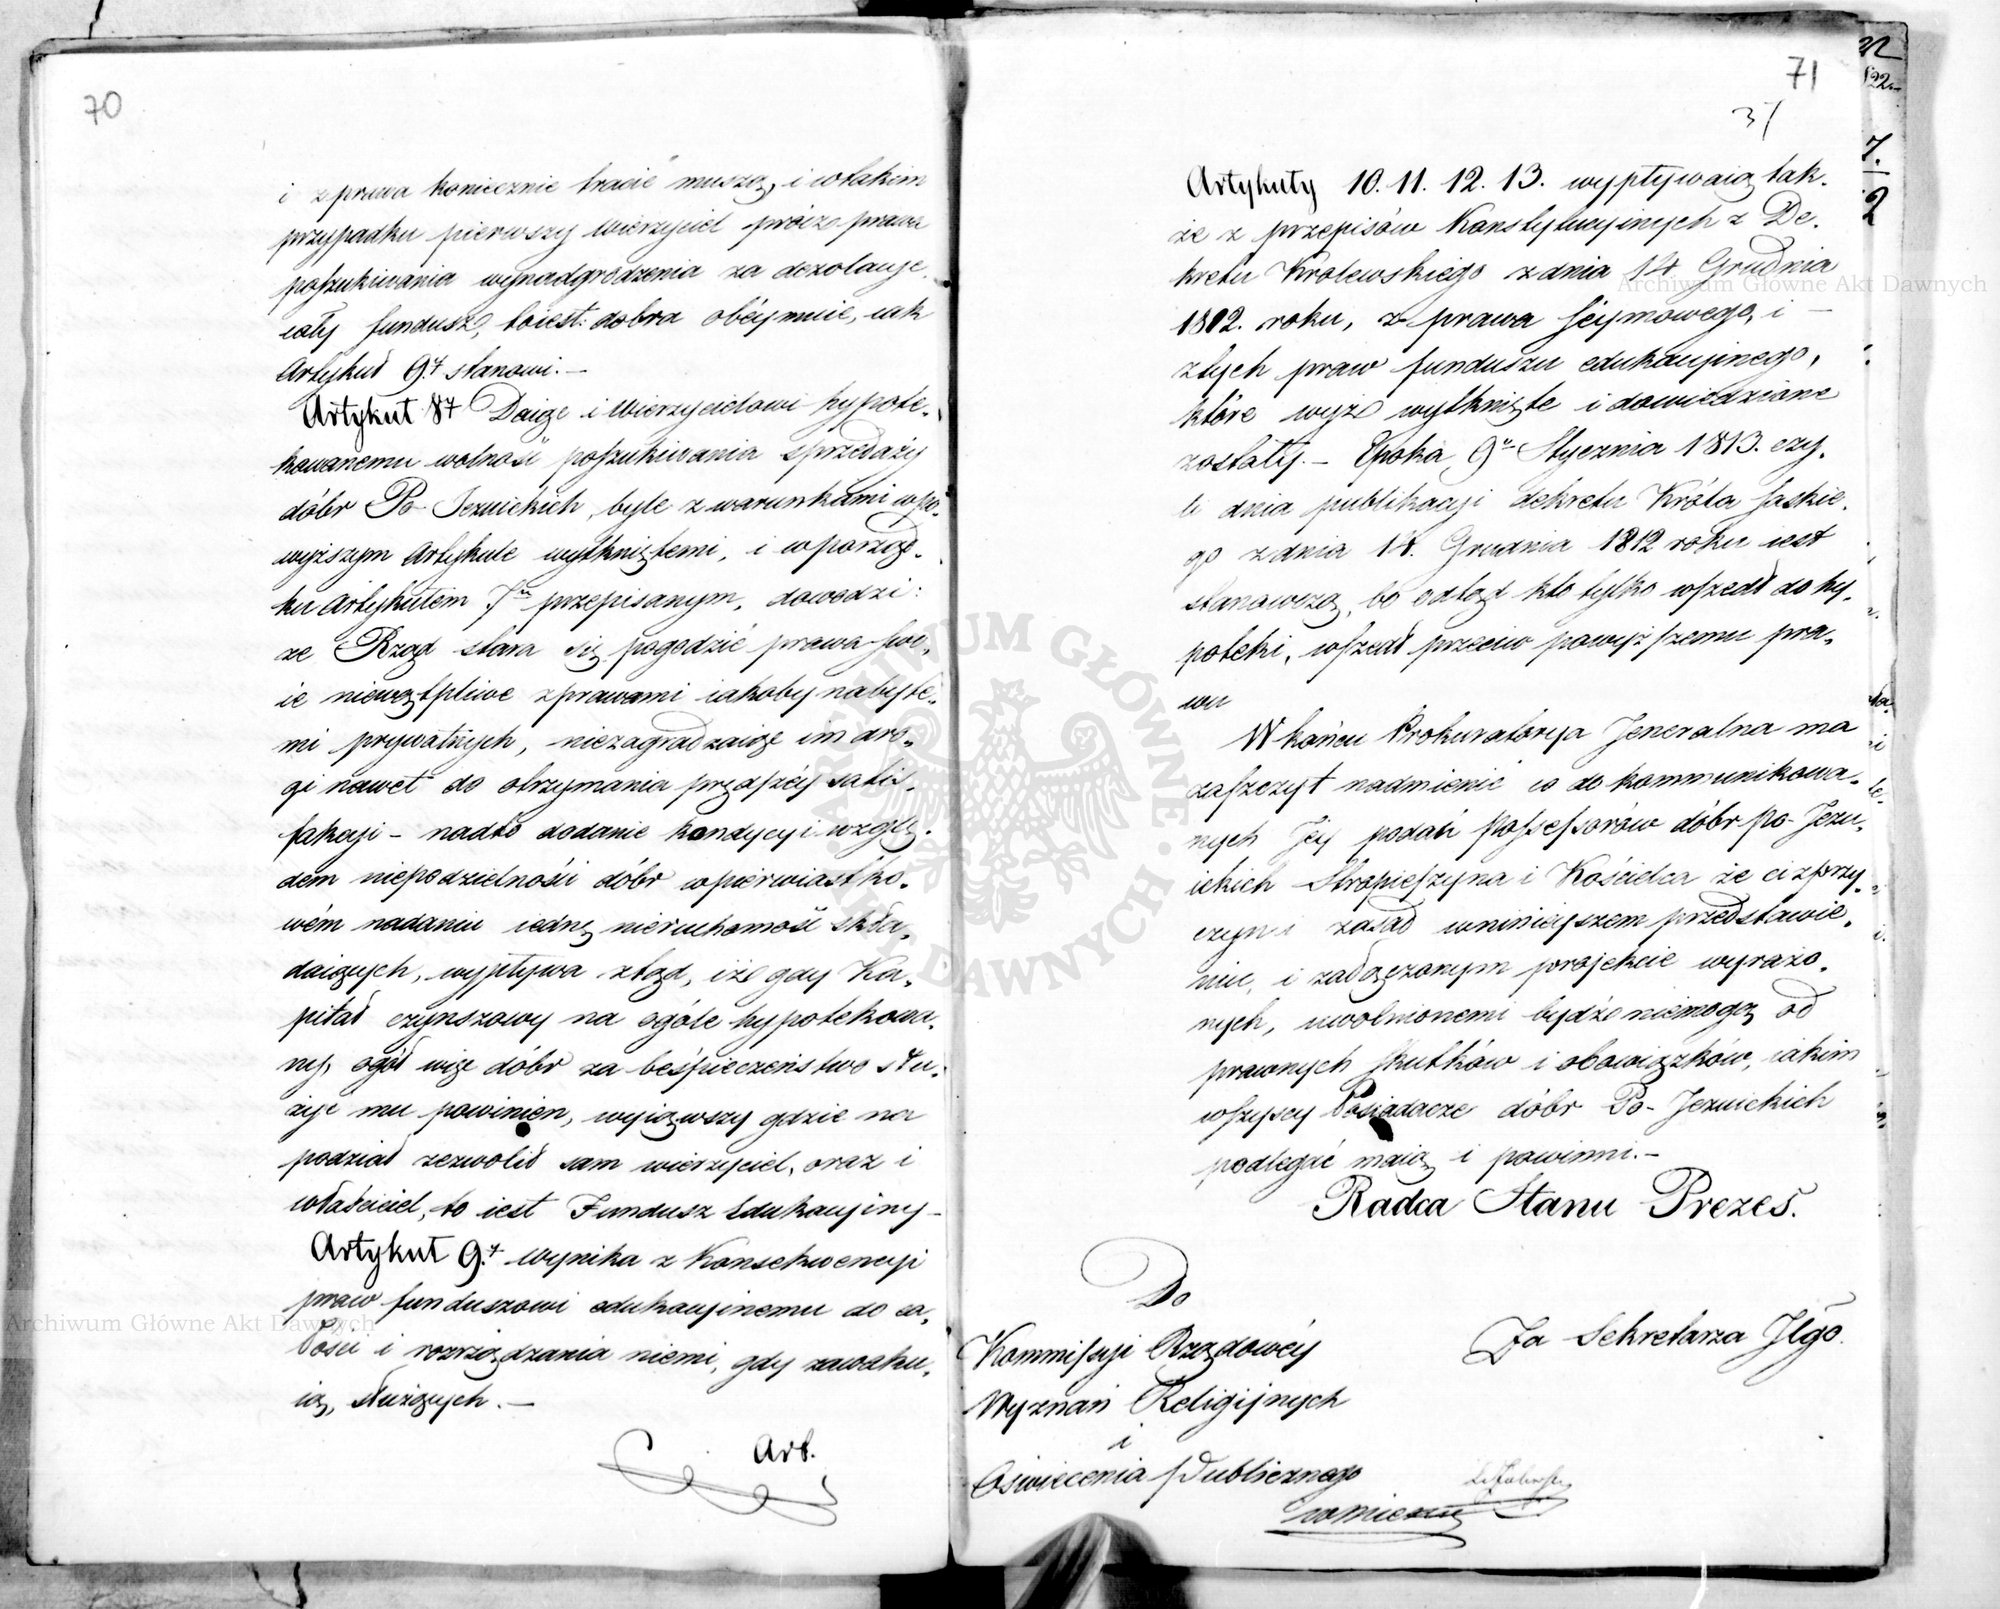 70
i z prawa koniecznie tracić muszą, i w takim
przypadku pierwszy Wierzyciel prócz prawa
poszukiwania wynadgrodzenia za dezolacye,
cały fundusz, to iest: dobra obéymuie, iak
Artykuł 9.ty stanowi. —
Artykuł 8.y Daiąc i Wierzycielowi hypote-
kowanemu wolność poszukiwania sprzedaży
dóbr Po-Jezuickich, byle z warunkami w po-
wyższym Artykule wytkniętemi, i w porząd-
ku Artykułem 7.m przepisanym, dowodzi:
że Rząd stara się pogodzić prawa swo-
ie niewątpliwe z prawami iakoby nabyte-
mi prywatnych, niezagradzaiąc im dro-
gi nawet do otrzymania prędszéy satis-
fakcyi — nadto dodanie kondycyi wzglę-
dem niepodzielności dóbr w pierwiastko-
wém nadaniu iedną nieruchomość skła-
daiących, wypływa ztąd, iż gdy Ka-
pitał czynszowy na ogóle hypotekowa-
ny, ogół więc dóbr za beśpieczeństwo słu-
żyć mu powinien, wyiąwszy gdzie na
podział zezwolił sam wierzyciel, oraz i
właściciel, to iest Fundusz Edukacyiny —
Artykuł 9.ty wynika z Konsekwencyi
praw funduszowi edukacyinemu do ca-
łości i rozrządzania niemi, gdy zawaku-
ią, służących. —
Art.
71
37
Artykuły 10. 11. 12. 13. wypływaią tak-
że z przepisów Konstytucyinych z De-
kretu Królewskiego z dnia 14 Grudnia
1812. roku, z prawa Séymowego, i —
z tych praw funduszu edukacyinego,
które wyżéy wytknięte i dowiedzione
zostały. — Epoka 9.o Stycznia 1813. czy-
li dnia publikacyi dekretu Króla Saskie-
go z dnia 14. Grudnia 1812 roku iest
stanowczą, bo odtąd kto tylko wszedł do hy-
poteki, wszedł przeciw powyższemu pra-
wu
W końcu Prokuratorya Jeneralna ma
zaszczyt nadmienić co do kommunikowa-
nych Jéy podań Possessorów dóbr po-Jezu-
ickich Stropieszyna i Kościelca że ci z przy-
czyn i zasad w niniéyszem przedstawie-
niu, i załączonym projekcie wyrażo-
nych, uwolnionemi bydź niemogą od
prawnych skutków i obowiązków, iakim
wszyscy Posiadacze dóbr Po-Jezuickich
podlegać maią i powinni. —
Radca Stanu Prezes.
Do
Kommissyi Rządowéy
Wyznań Religijnych
i
Oświecenia Publicznego
w mieście
Za Sekretarza Jlgo.
Archiwum Główne Akt Dawnych
Archiwum Główne Akt Dawnych
ARCHIWUM GŁÓWNE AKT DAWNYCH